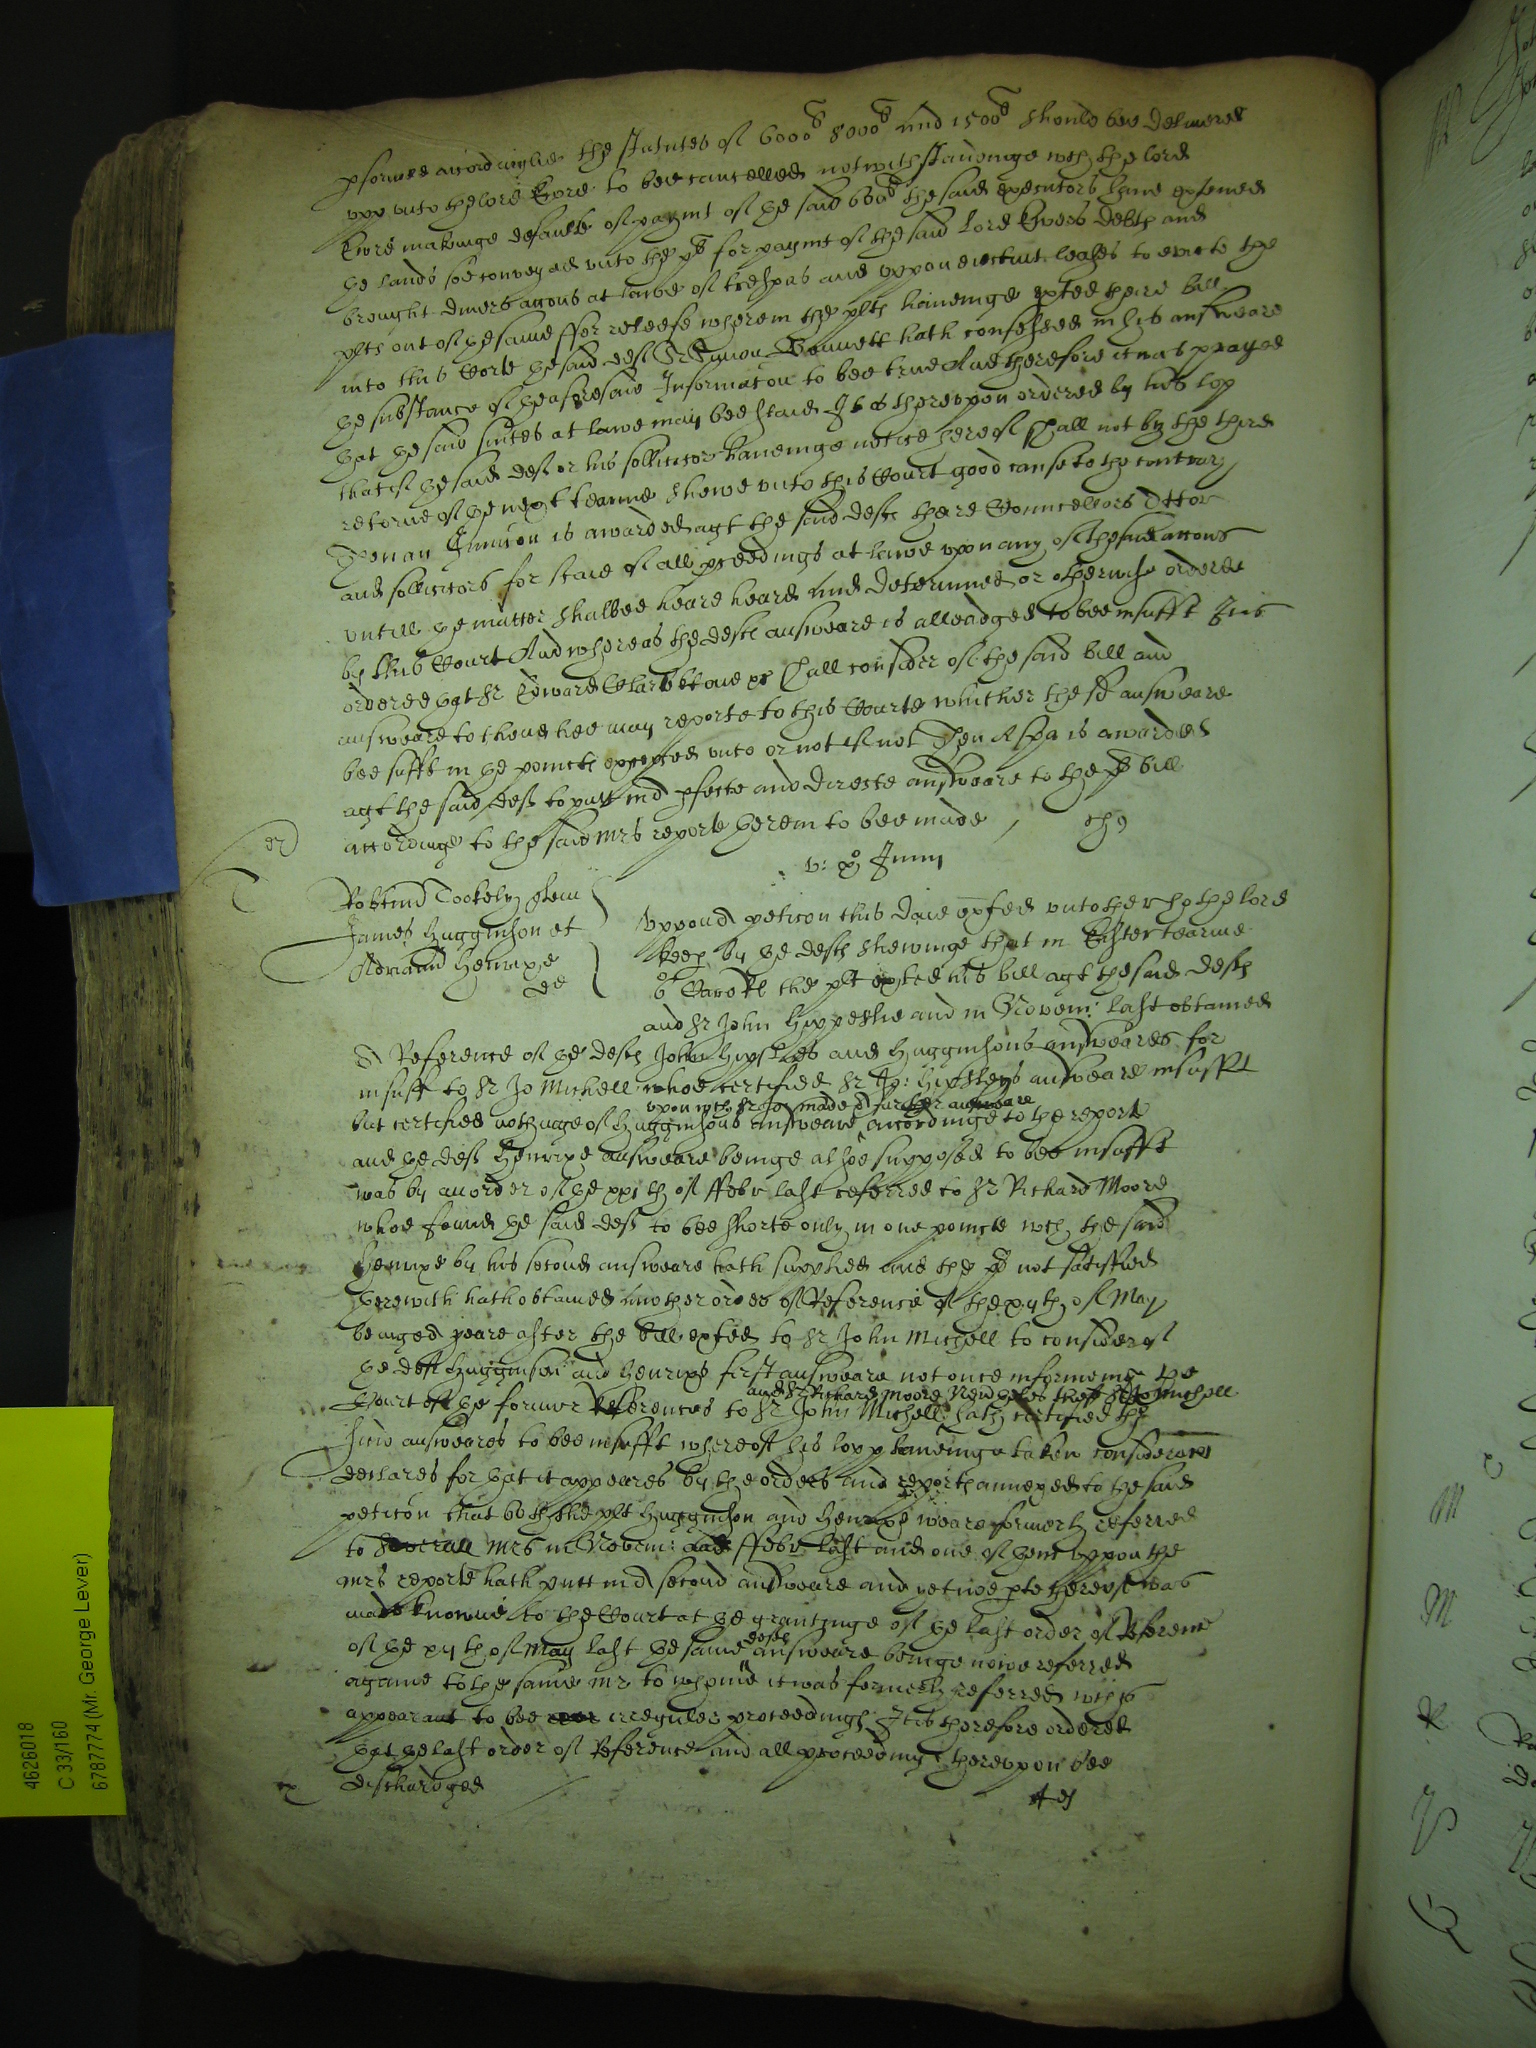 pformed accordinglie the statutes of 6000li 8000li and 1500li should bee delivered
upp unto the lord Evre to bee cancelled notwithstandinge wch the lord
Evre makinge default of paymt of the said 600li the said executors have extended
the lands soe conveyed unto the plt for paymt of the said lord Evers debts and
brought divers accons at lawe of trespas and uppon eiectmt leases to evicte the
plts out of the same ffor releefe wherein the plts haveinge exhted theire bill
into this Corte the said deft Sr Simon Bennett hath confessed in his answeare
the substance of the aforesaid Informacon to bee true And therefore it was prayed
that the said suites at lawe may bee staid It is thereupon ordered by his lop
that if the said deft or his sollicitor haveinge notice hereof shall not by the third
retorne of the next tearme shewe unto this Court good cause to the contrary
Then an Iniuncon is awarded agt the said defts there Councellors Attor
and sollicitors for staie of all pceedings at lawe upon any of the said accons
untill the matter shalbee heare heard and determined or otherwise ordered
by this Court And whereas the defts answeare is alleadged to bee insufft It is
ordered that Sr Edward Clarke shall consider of the said bill and
answeare to thend hee may reporte to this Courte whither the sd answeare
bee sufft in the points excepted unto or not If not Then A spa is awarded
agt the said deft to putt in A pfecte and directe answeare to the plts bill
accordinge to the said Mrs reporte therein to bee made
v: x° Junii
Tockely
James Hugginson et
Adriand Henrixe
de
Uppon A peticon this daie exhted unto the the lord
keep by the defts shewinge that in Easter tearme
6to Caroli the plt exhted his bill agt the said defts
and Sr John Hippeslie and in Novem: last obtained
A Reference of the defts John Hipslies and Hugginsons answeares for
insuff to Sr Jo Michell whoe certified Sr Jo: Hipsleys answeare insufft
upon wch Sr Jo: made A further answeare
but certified nothinge of Hugginsons answeare accordinge to the reporte
and the deft Henrixe answeare beinge alsoe supposed to bee insufft
was by an order of the xxith of ffebr last referred to Sr Richard Moore
whoe found the said deft to bee shorte only in one pointe wch the said
Henrixe by his second answeare hath supplied and the plt not satisfied
therewith hath obtained another order of Reference of the xijth of May
beinge A yeare after the bill exhted to Sr John Michell to consider of
the deft Hugginson and Henrixe first answeare not once informeing the
Court of the former References to Sr John Michell and Sr Richard Moore Neverthelesse Sr Jo Michell hath certified the
said answeares to bee insufft whereof his lopp haveinge taken consideracon
declares for that it appeares by the orders and reports annexed to the said
peticon that both the plt Hugginson and Henrixe weare formerly referred
to severall Mrs in Novem: and ffebr last and one of them uppon the
Mrs reporte hath putt in A second answeare and yet noe pte thereof was
made knowne to the Court at the grantinge of the last order of Reference
of the xijth of May last the same defts answeare beinge nowe referred
againe to the same Mr to whome it was formerly referred wch is
appearant to bee irreguler proceedings It is therefore ordered
that the last order of Reference and all proceedings thereupon bee
dischardged
4626018
C 33/160
6787774 (Mr. George Lever)